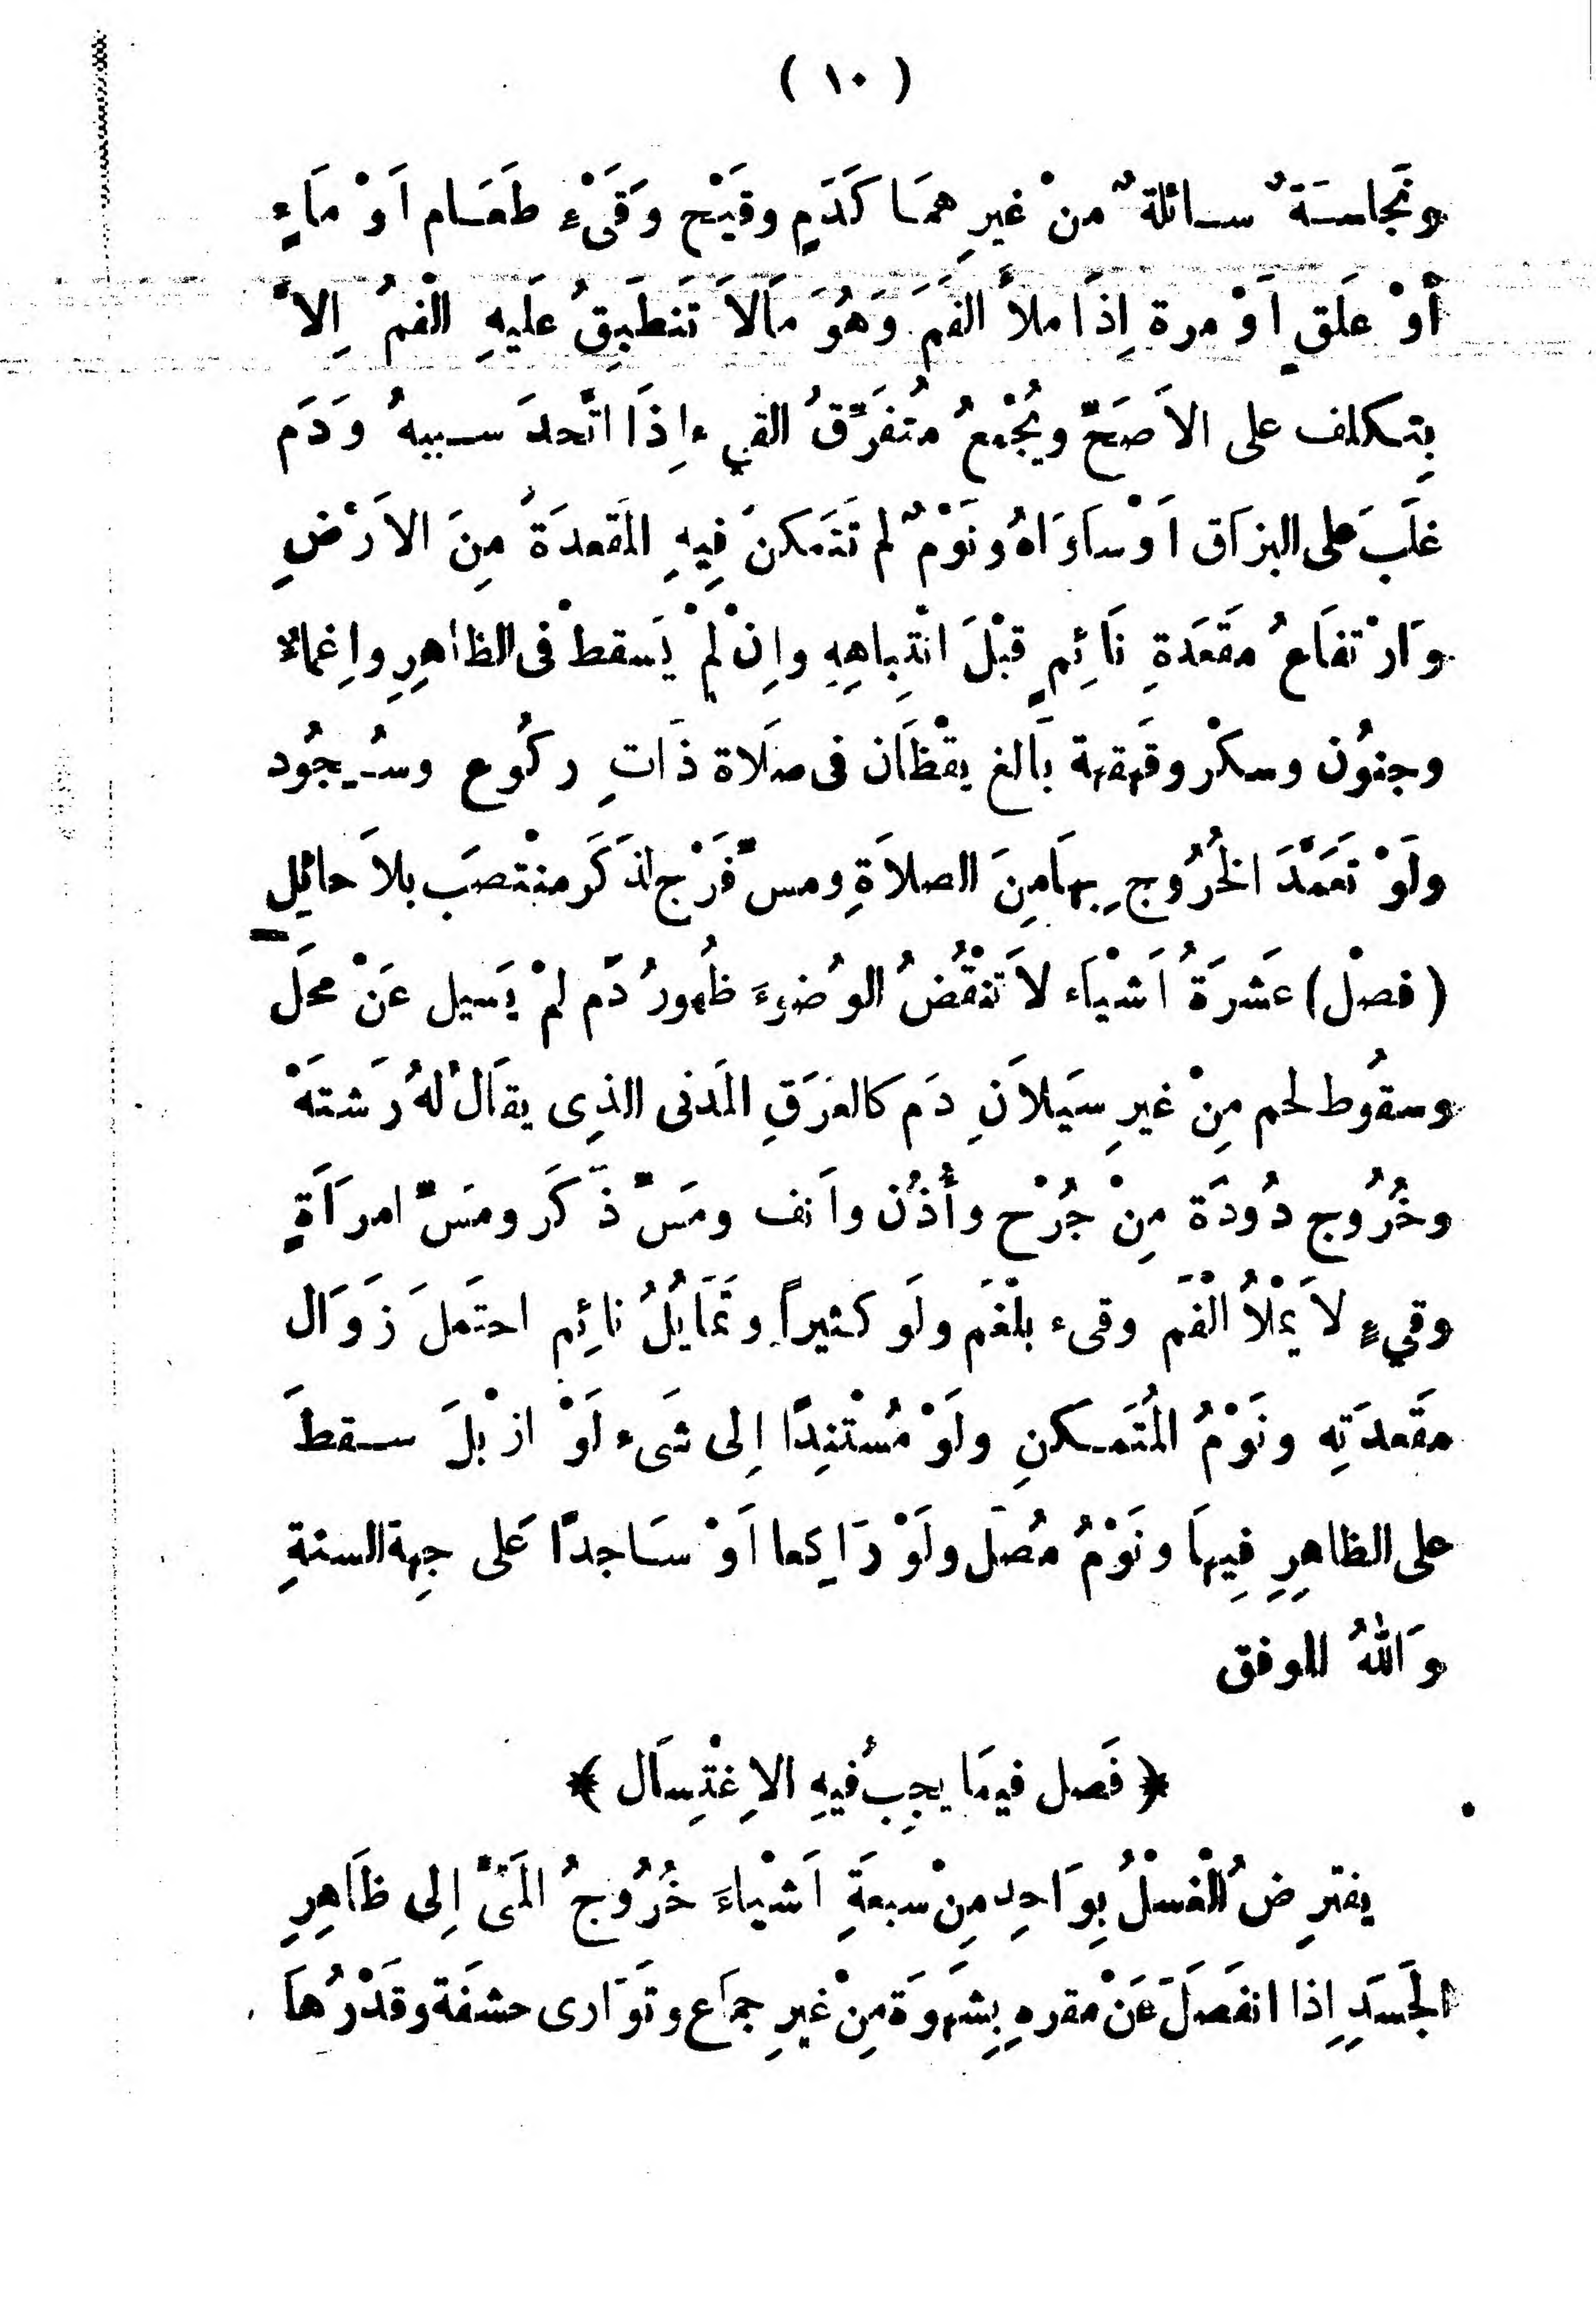 ( ١٠ )
وَنَجاسَةٌ سـائلةٌ منْ غيرِهمَـا كَدَمٍ وقيَحٍ وَقَىْءِ طَعَـام اَوْ مَاءٍ
أوْ عَلَقٍ اَوْ مرة اِذَا ملأَ الفَمَ وَهُوَ مَالاَ تَنطَبِقُ عَليهِ الْفمُ اِلاَّ
بِتـكلف على الاَصَحِّ ويُجْمعُ مُتفَرِّقُ القيء اِذَا اتَّحدَ سـببهُ وَدَم
غلَبَ على البزَاق اَوْ سَاوَاهُ ونَوْمٌ لم تَتَمكنْ فِيهِ المَقعدَةُ مِنَ الاَرْضِ
وَارْتفَاعُ مقَعَدَةِ نَائِمٍ قبْلَ انْتِباهِهِ واِنْ لمْ يَسقطْ فى الظاهِرِ واِغماءٌ
وجنوُن وسكْر وقَهقهة بَالغ يقْظَان فى صلَاة ذَاتِ ركُوع وسُـجُود
ولَوْ تَعَمَّدَ الخُرُوج بِهَا مِنَ الصلاَةِ ومسّ فَرْج لِذَكَر منْتصَب بلاَ حائِلٍ
( فصْل ) عَشرَةُ اَشيْاَء لاَ تنْقُضُ الوُضوءَ ظُهورُ دَم لمْ يَسيل عَنْ محلَّ
وسقوُط لحم مِنْ غيرِ سيَلاَنِ دَم كالعَرَقِ المَدنى الذِى يقَالُ لهُ رَشتَهْ
وخُرُوج دُودَة مِنْ جُرْح وأُذُن واَنف ومَسّ ذَكَر ومَسّ امرَأَةٍ
وقيءٍ لاَ يمْلأُ الْفَمَ وقىء بلْغَم ولَو كثيراً وتَمَايُلُ نائِم احتَملَ زَوَال
مقَعدَتِه ونَوْمُ المُتَمـكنِ ولَوْ مُسْتنِدًا اِلى شَىء لَوْ ازيْلَ سـقطَ
على الظاهِرِ فِيهَا ونَوْمُ مُصَل ولَوْ رَاكِعا اَوْ سَـاجدًا عَلى جِهة السنةِ
وَاللهُ الموفق
﴿ فَصل فيمَا يجِبُ فيهِ الاِغْتِسَال ﴾
يفترِضُ الْغسْلُ بِوَاحِد مِنْ سبعةَِ اَشيْاءَ خُرُوجُ المَنىّ اِلى ظَاهِرِ
الجَسَدِ اِذا انفَصَلَ عَنْ مقرهِ بِشهَوَة مِنْ غيرِ جمَاع وتَوَارى حشفَة وقَدْرُهَا